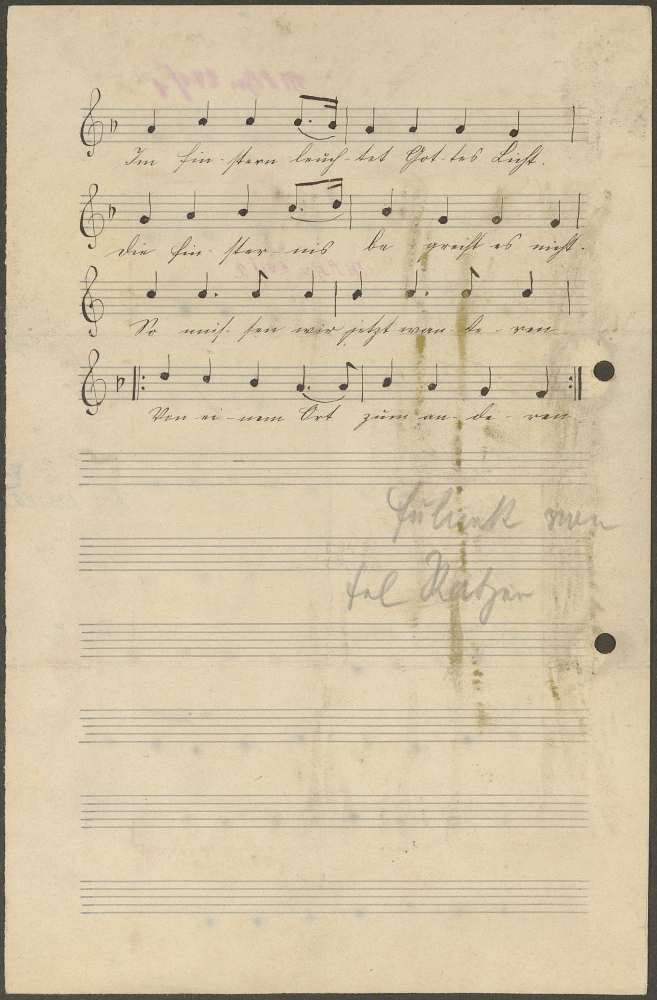 Im Fin-stern leuch-tet Got-tes Licht.
die Fin-ster-nis be greift es nicht.
So müs-sen wir jetzt wan-de-ren
Von ei-nem Ort zum an-de-ren
von